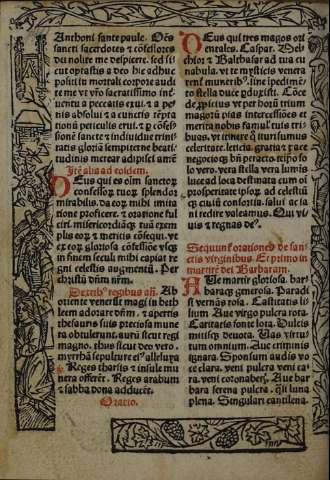 Anthoni sancte paule. Oēs
sancti sacerdotes ⁊ cōfessores
dei nolite me despicere. sed si
cut optastis a deo hic adhuc
positi in mortali corpore audi
te me vt vr̄o sacratissimo
uentu a peccatis exui. ⁊ a pe
nis absolui ⁊ a cunctis
tion periculis erui. ⁊ p cōfes
sionē sancte ⁊ indiuidue trini
tatis gloriā sempiterne beati
tudinis merear adipisci amē
Itē alia ad eosdem.
DEus qui es oīm sanctoꝝ
confessoꝝ tuoꝝ splendor
mirabilis. da eoꝝ mihi imita
tione proficere. ⁊ oratione ful
ciri. misericordiāqꝫ tuā exem
plis eoꝝ ⁊ meritis cōsequi. vt
ex eoꝝ gloriosa cōfessiōe
in finem seculi mihi capiat re
gni celestis augmentū. Per
christū dn̄m nr̄m.
De trib⁹ regibus añ.
Ab
oriente venerūt magi in beth
leem adorare dn̄m. ⁊ apertis
thesauris suis preciosa mune
ra obtulerunt. aurū sicut regi
magno. thus sicut deo vero.
myrrhā sepulture ei⁹ alleluya
Reges tharsis ⁊ insule mu
nera offerēt. Reges arabum
⁊ sabba dona adducēt.
Oratio.
DEus qui tres magos ori
entales. Caspar. Mel
chior ⁊ Balthasar ad tua cu
nabula. vt te mysticis venera
rent muneribꝰ. sine īpedimē
to stella duce pduxisti. Cōce
de ꝓpicius vt per horū trium
magorū pias intercessiōes et
merita nobis famul⁊ tuis tri
buas. vt itinere quo ituri sumus
celeritate. leticia. gratia ⁊ pace
negocioqꝫ bn̄ peracto. te ipso so
lo vero. vera stella. vera lumīs
luce ad loca destinata cum oī
prosperitate ipsoꝝ ad celestiū
ciuiū consortia. salui ac la
ti redire valeamus. Qui vi
uis ⁊ regnas deꝰ.
Sequunt᷑ orationes de san
ctis virginibus. Et primo in
martirē dei Barbaram.
AUe martir gloriosa. bar
baraqꝫ generosa. Paradi
si vernās rosa. Castitatis li
lium Aue virgo pulcra rota.
Caritatis fonte lota. Dulcis
mitisqꝫ deuota. Uas virtu
tum omnium. Aue criminis
ignara. Sponsum audis vo
ce clara. veni pulcra veni ca
ra. veni coronaberꝭ. Aue bar
bara serena pulcra. qͣsi luna
plena. Singulari cantilena.